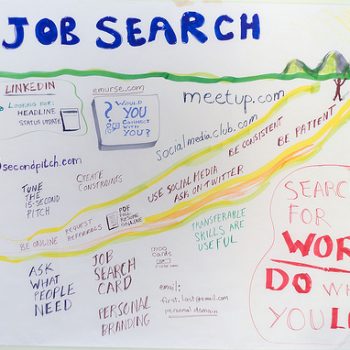 JOB SEARCH
LINKEDIN
LOOKING FOR:
HEADLINE
STATUS UPDATE
emurse.com
WOULD
YOU
CONNECT
WITH
YOU?
meetup.com
socialmediaclub.com
BE CONSISTENT
BE PATIENT
secondpitch.com
TUNE
THE
15-SECOND
PITCH
CREATE
CONSTRAINTS
USE SOCIAL MEDIA
ASK ON TWITTER
BE ONLINE
REQUEST
REFERRALS
PDF
RESUME
ONLINE
TRANSFERABLE
SKILLS ARE
USEFUL
ASK
WHAT
PEOPLE
NEED
JOB
SEARCH
CARD
PERSONAL
BRANDING
cards
email:
first.last@email.com
personal domain
SEARC
FOR
WOR
DO WH
YOU LO